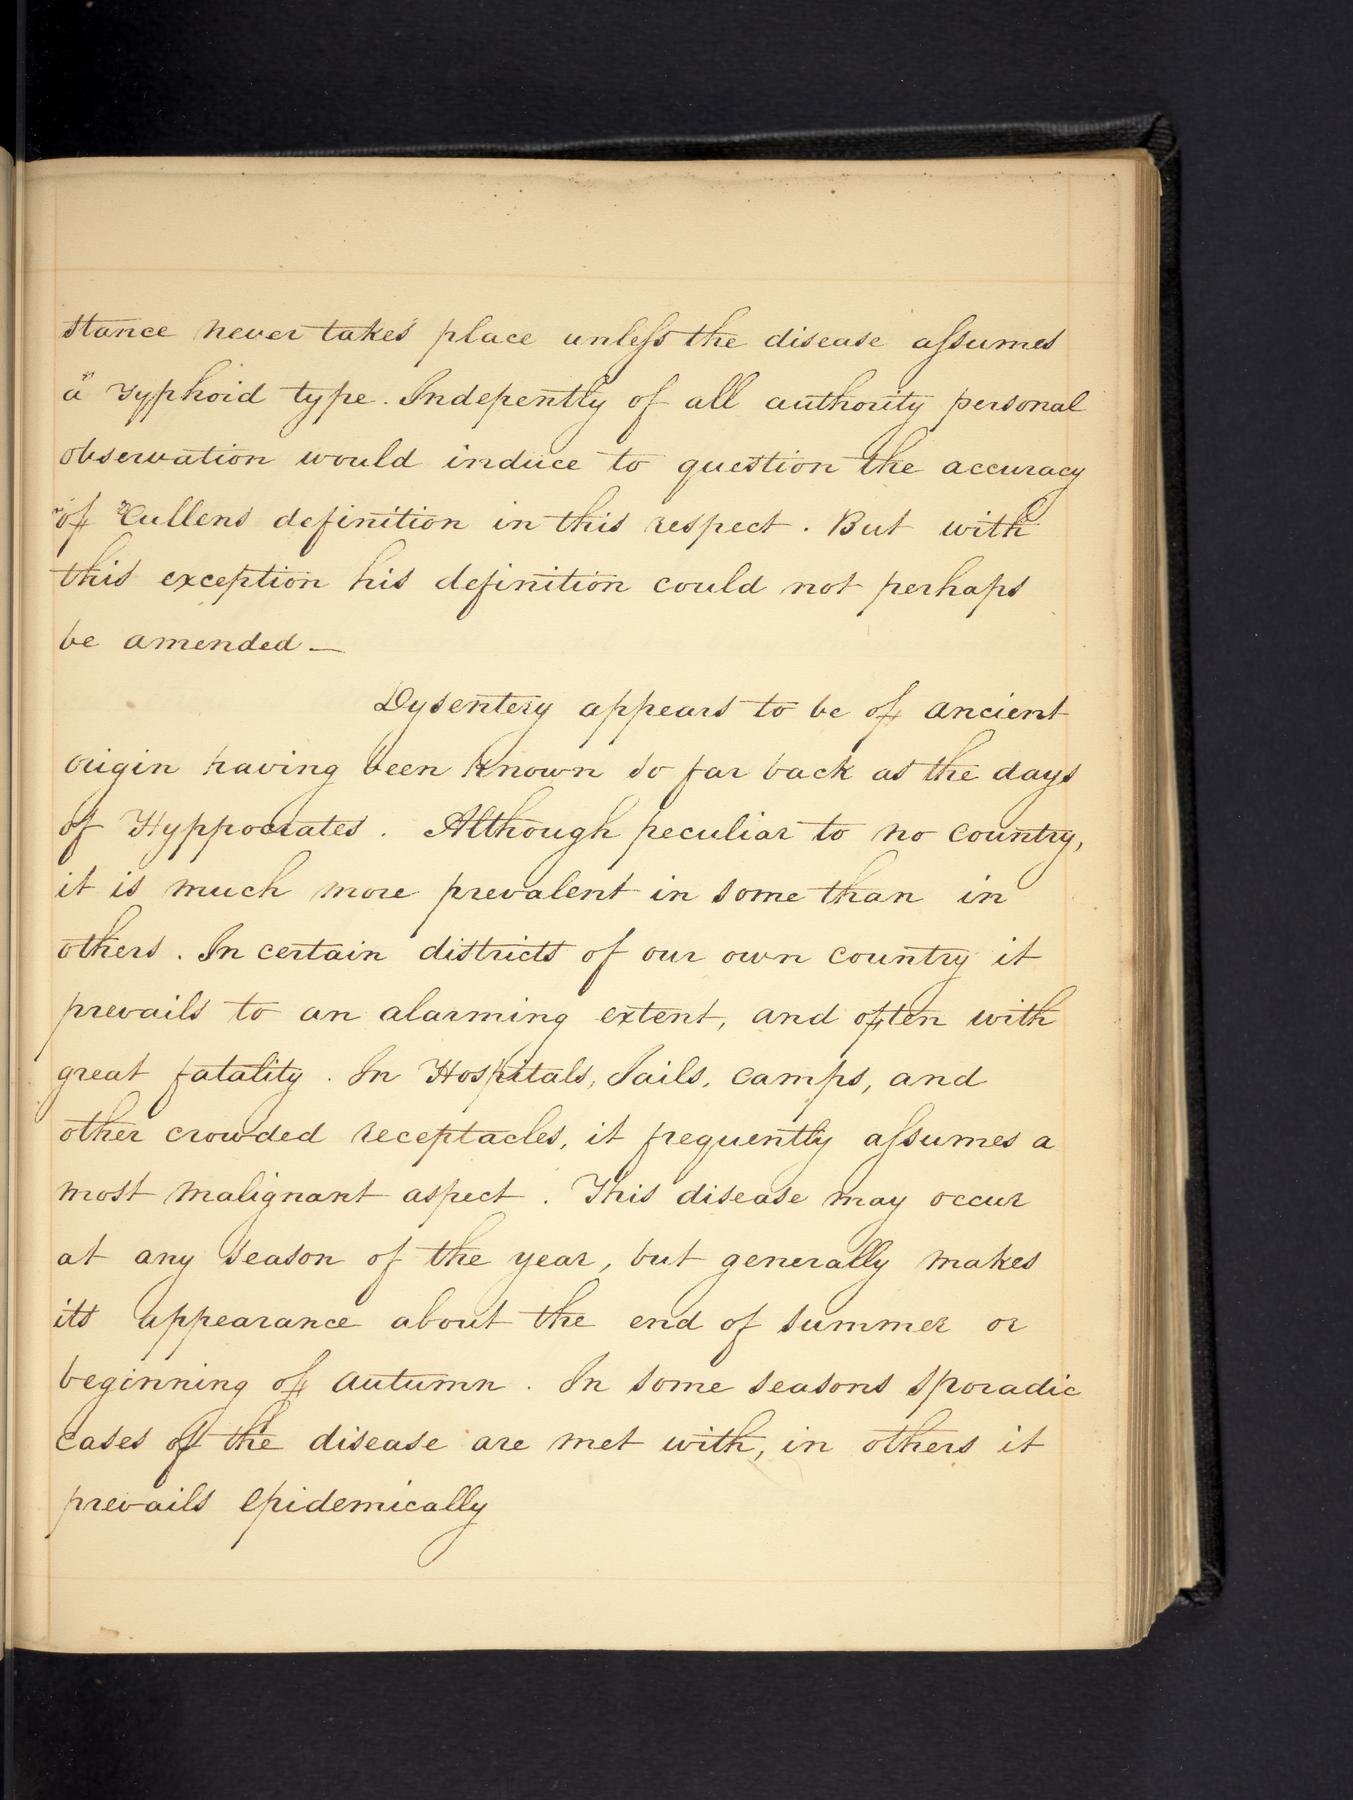 stance never takes place unless the disease assumes
a Typhoid type. Indepently of all authority personal
observation would induce to question the accuracy
of Cullens definition in this respect. But with
this exception his definition could not perhaps
be amended —
Dysentery appears to be of ancient
origin having been known so far back as the days
of Hyppocrates. Although peculiar to no country,
it is much more prevalent in some than in
others. In certain districts of our own country it
prevails to an alarming extent, and often with
great fatality. In Hospitals, Jails, camps, and
other crowded receptacles, it frequently assumes a
most malignant aspect. This disease may occur
at any season of the year, but generally makes
its appearance about the end of summer or
beginning of autumn. In some seasons sporadic
cases of the disease are met with, in others it
prevails epidemically